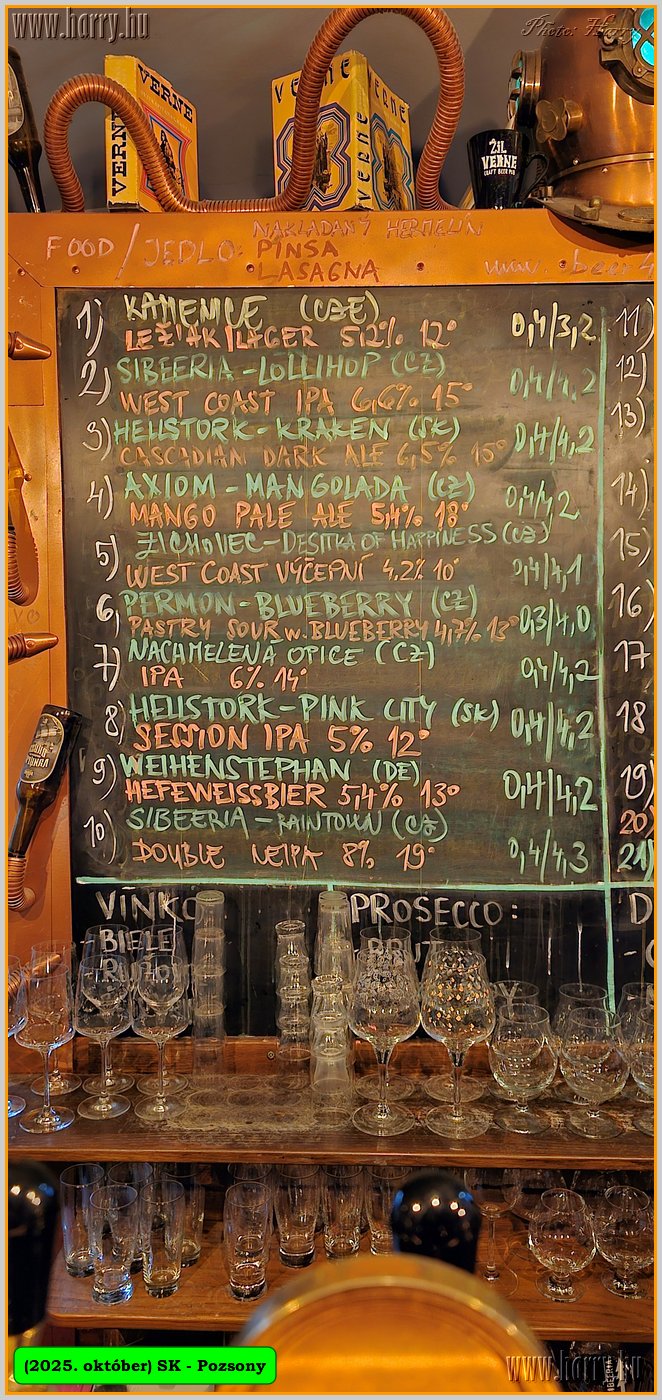 www.harry.hu
Photo: Harry
VERNE
VERNE
VERNE
VERNE
VERNE
ŽIL
VERNE
CRAFT BEER PUB
FOOD/JEDLO:
NAKLADANÝ HERMELÍN
PINSA
LASAGNA
www. beer4
1) KAMENICE (CZE) 0,4/3,2
LEŽIAK/LAGER 5,2% 12°
2) SIBEERIA - LOLLIHOP (CZ) 0,4/4,2
WEST COAST IPA 6,6% 15°
3) HELLSTORK - KRAKEN (SK) 0,4/4,2
CASCADIAN DARK ALE 6,5% 15°
4) AXIOM - MANGOLADA (CZ) 0,4/4,2
MANGO PALE ALE 5,4% 18°
5) ZICHOVEC - DESITKA OF HAPPINESS (CZ) 0,4/4,1
WEST COAST VÝČEPNÍ 4.2% 10°
6) PERMON - BLUEBERRY (CZ) 0,3/4,0
PASTRY SOUR w. BLUEBERRY 4,7% 13°
7) NACHMELENÁ OPICE (CZ) 0,4/4,2
IPA 6% 14°
8) HELLSTORK - PINK CITY (SK) 0,4/4,2
SESSION IPA 5% 12°
9) WEIHENSTEPHAN (DE) 0,4/4,2
HEFEWEISSBIER 5,4% 13°
10) SIBEERIA - RAINTOWN (CZ) 0,4/4,3
DOUBLE NEIPA 8% 19°
11)
12)
13)
14)
15)
16)
17
18
19)
20)
21)
VÍNKO:
BIELE
RUŽOV
PROSECCO:
BRUT
D
(2025. október) SK - Pozsony
www.harry.hu